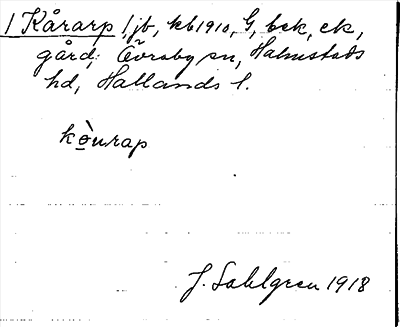 / Kårarp /, jb, kb 1910, G, bek, ek,
gård, Övraby sn, Halmstads
hd, Hallands l.
kòurap
J. Sahlgren 1918